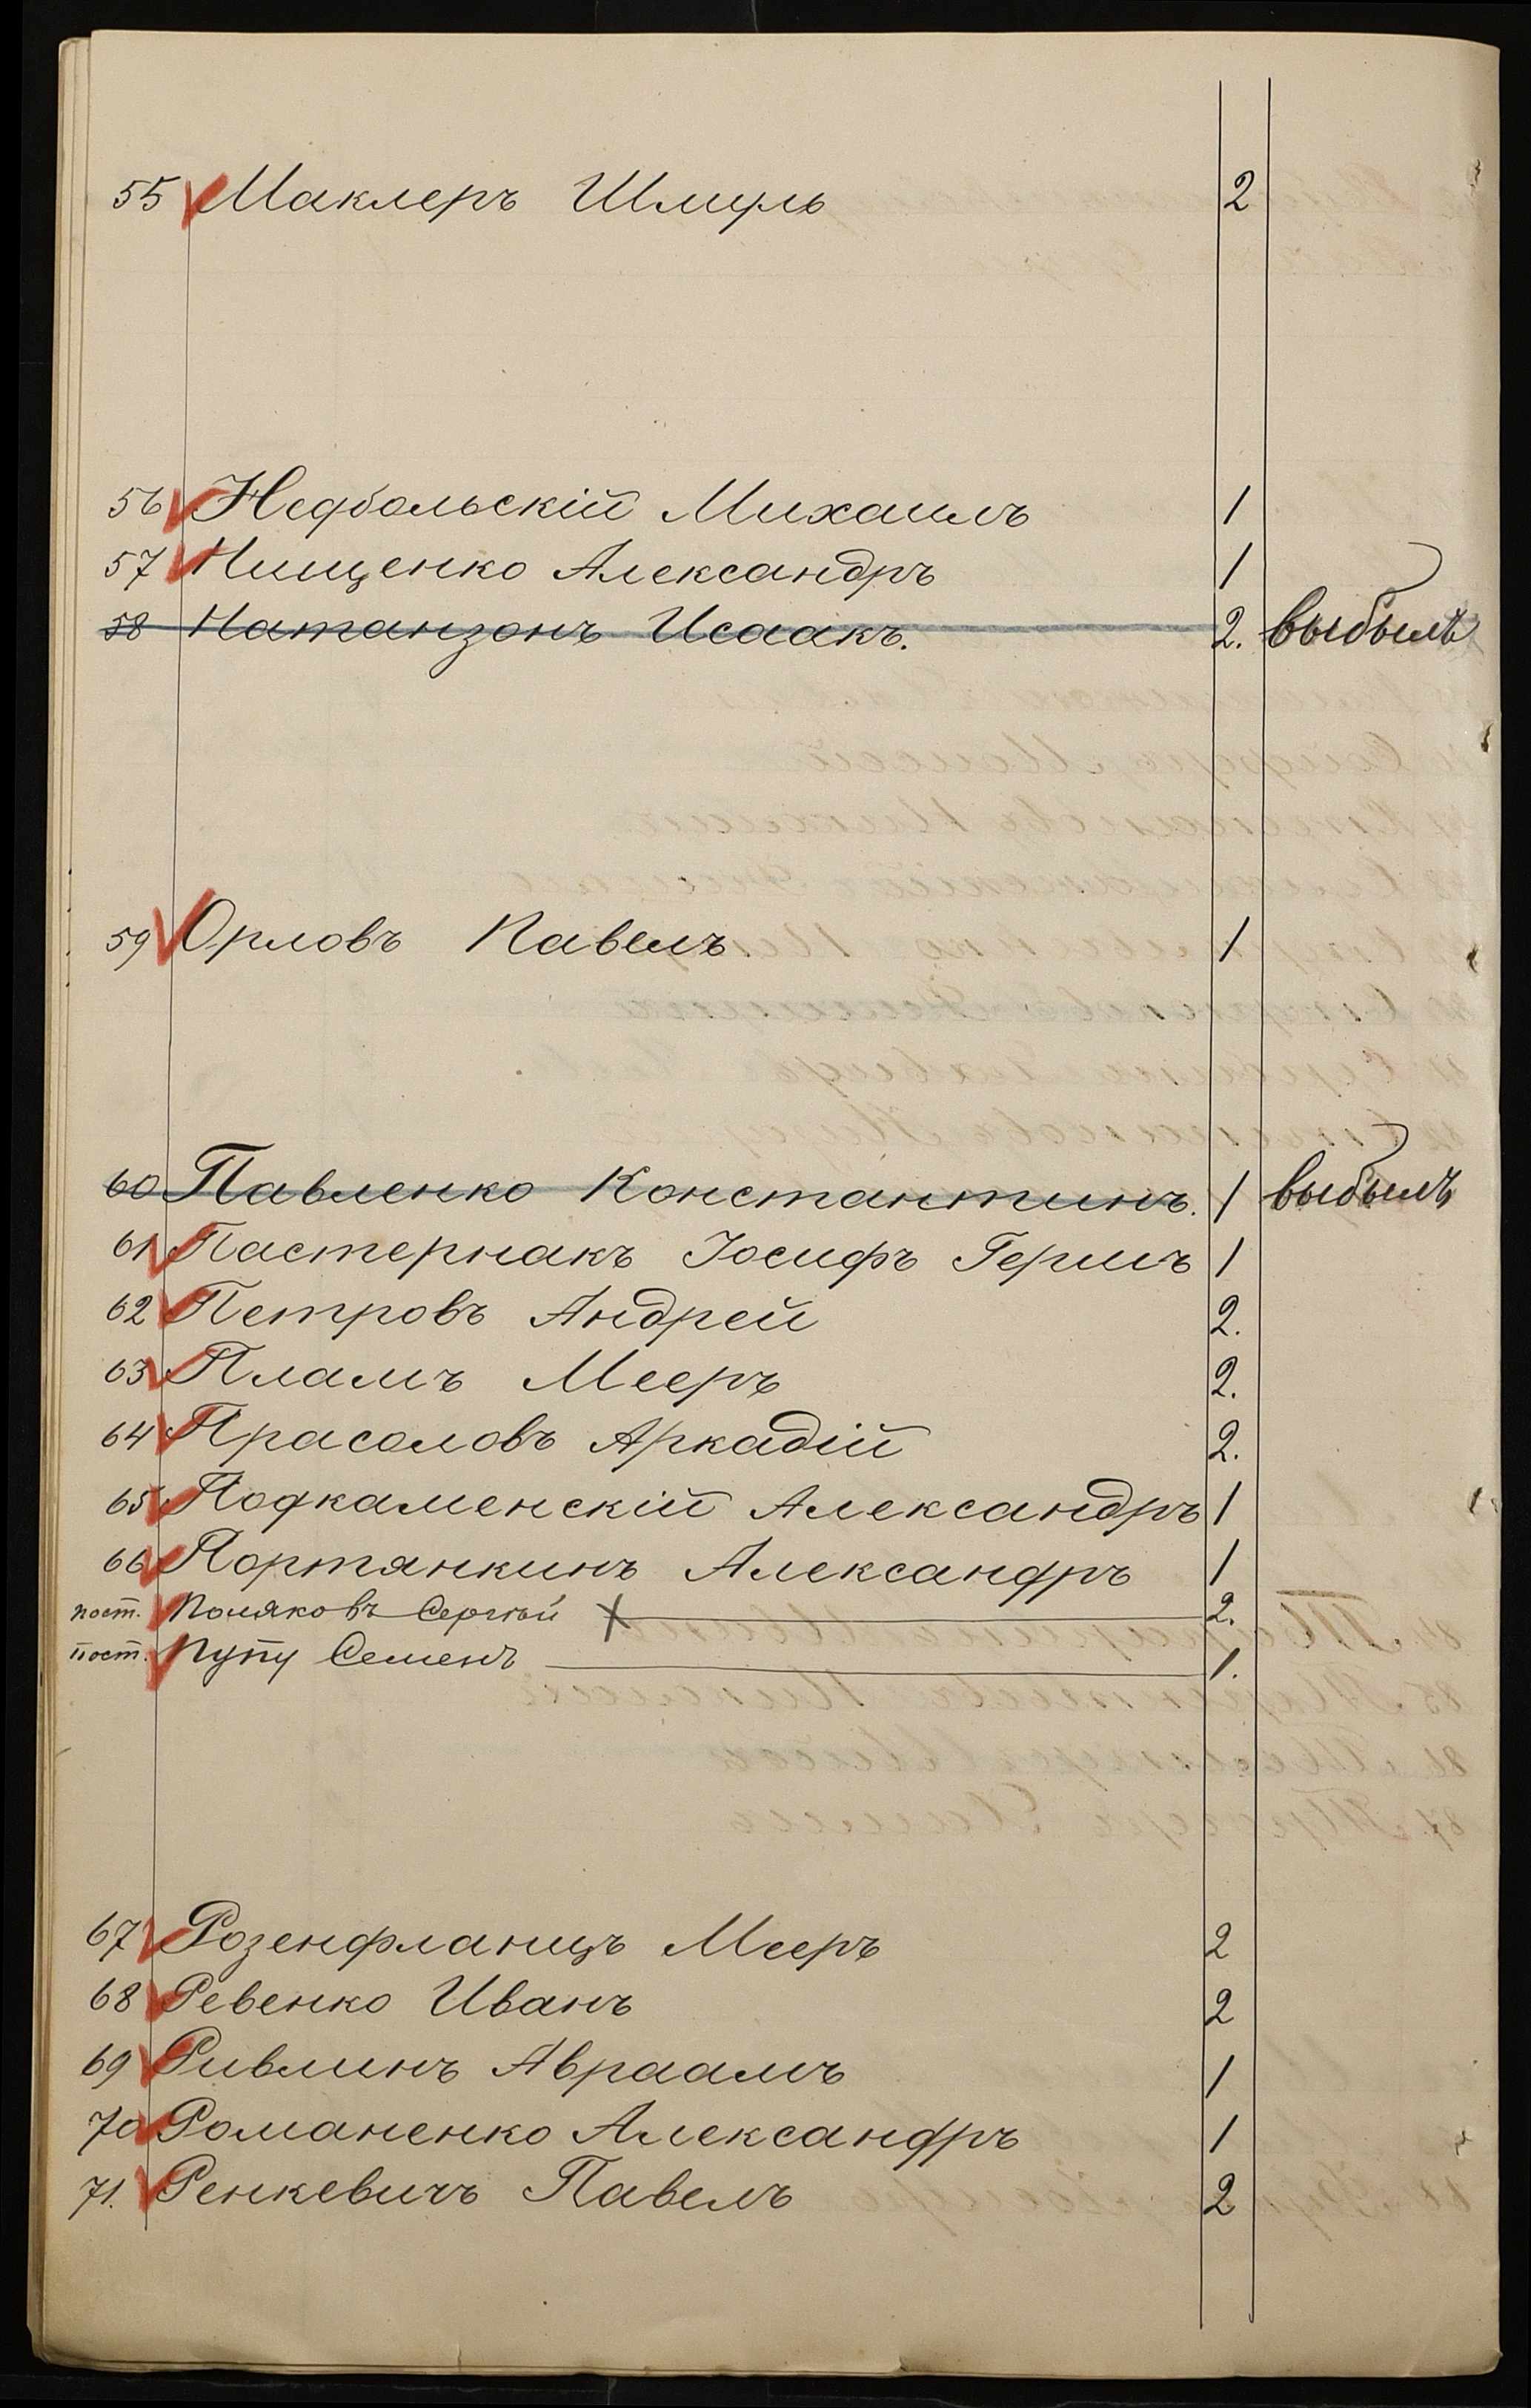 55 Маклеръ Шмуль 2
56 Недбольскій Михаилъ 1
57 Нищенко Александръ 1
58 Натанзонъ Исаакъ. 2. выбылъ
59 Орловъ Павелъ 1
60 Павленко Константинъ. 1 выбылъ
61 Пастернакъ Іосифъ Гершъ 1
62 Петровъ Андрей 2.
63 Пламъ Мееръ 2.
64 Прасоловъ Аркадій 2.
65 Подкаменскій Александръ 1
66 Портянкинъ Александръ 1
пост. Поляковъ Сергѣй 2.
пост. Пупу Семенъ 1.
67 Розенфланцъ Мееръ 2
68 Ревенко Иванъ 2
69 Ривлинъ Авраамъ 1
70 Романенко Александръ 1
71. Ренкевичъ Павелъ 2